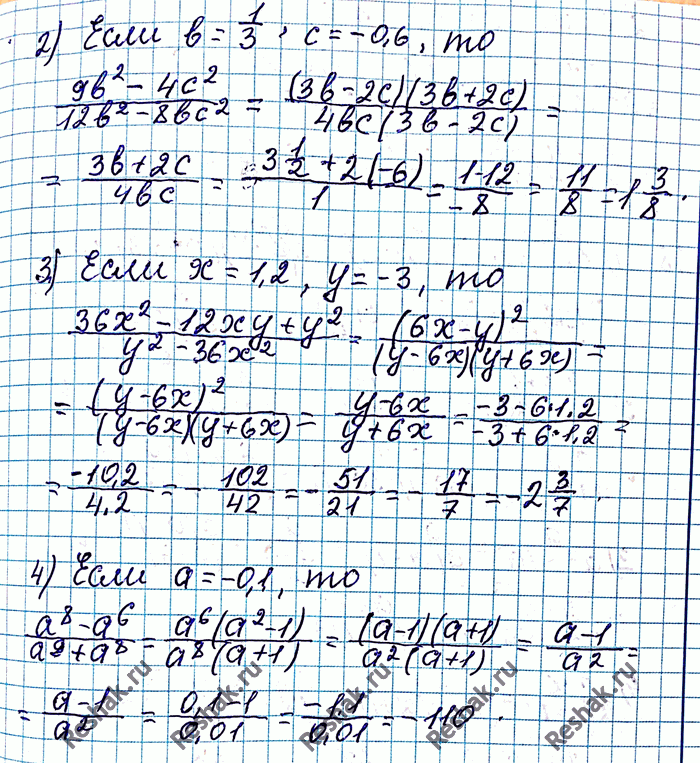 2) Если в = 1/3, c = -0,6, то
(9в² - 4c²)/(12в² - 8вc²) = ((3в - 2c)(3в + 2c))/(4вc(3в - 2c)) =
= (3в + 2c)/(4вc) = (3 1/2 + 2(-6))/1 = (1-12)/(-8) = 11/8 = 1 3/8.
3) Если x = 1,2, y = -3, то
(36x² - 12xy + y²)/(y² - 36x²) = (6x - y)²/((y - 6x)(y + 6x)) =
= (y - 6x)²/((y - 6x)(y + 6x)) = (y - 6x)/(y + 6x) = (-3 - 6·1,2)/(-3 + 6·1,2) =
= (-10,2)/4,2 = - 102/42 = - 51/21 = - 17/7 = -2 3/7.
4) Если a = -0,1, то
(a⁸ - a⁶)/(a⁹ + a⁸) = (a⁶(a² - 1))/(a⁸(a + 1)) = ((a - 1)(a + 1))/(a²(a + 1)) = (a - 1)/a² =
= (a - 1)/a² = (0,1 - 1)/0,01 = (-1,1)/0,01 = -110.
Reshak.ru Reshak.ru Reshak.ru Reshak.ru Reshak.ru